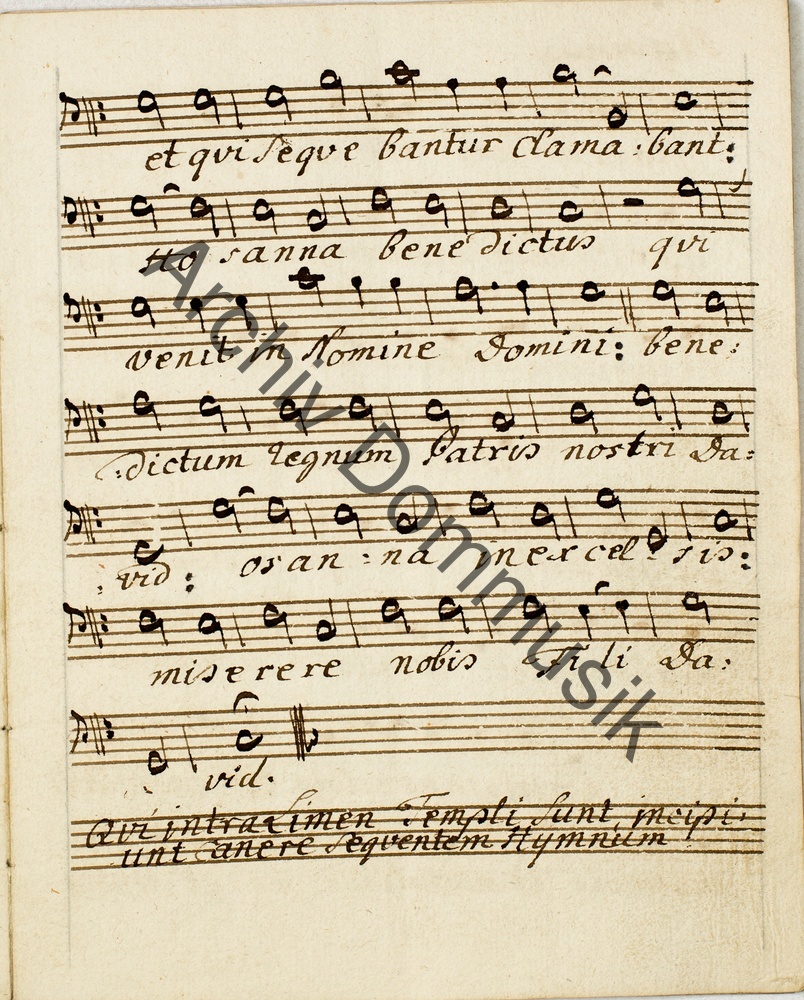 et qvi seqve bantur Clama: bant:
Ho sanna bene dictus qvi
venit in Nomine Domini: bene:
:dictum regnum Patris nostri Da:
: vid: osan:na in excel:sis:
miserere nobis Fili Da:
vid.
Qvi intra Limen Templi sunt incipi:
unt canere seqventem Hymnum
Archiv Dommusik